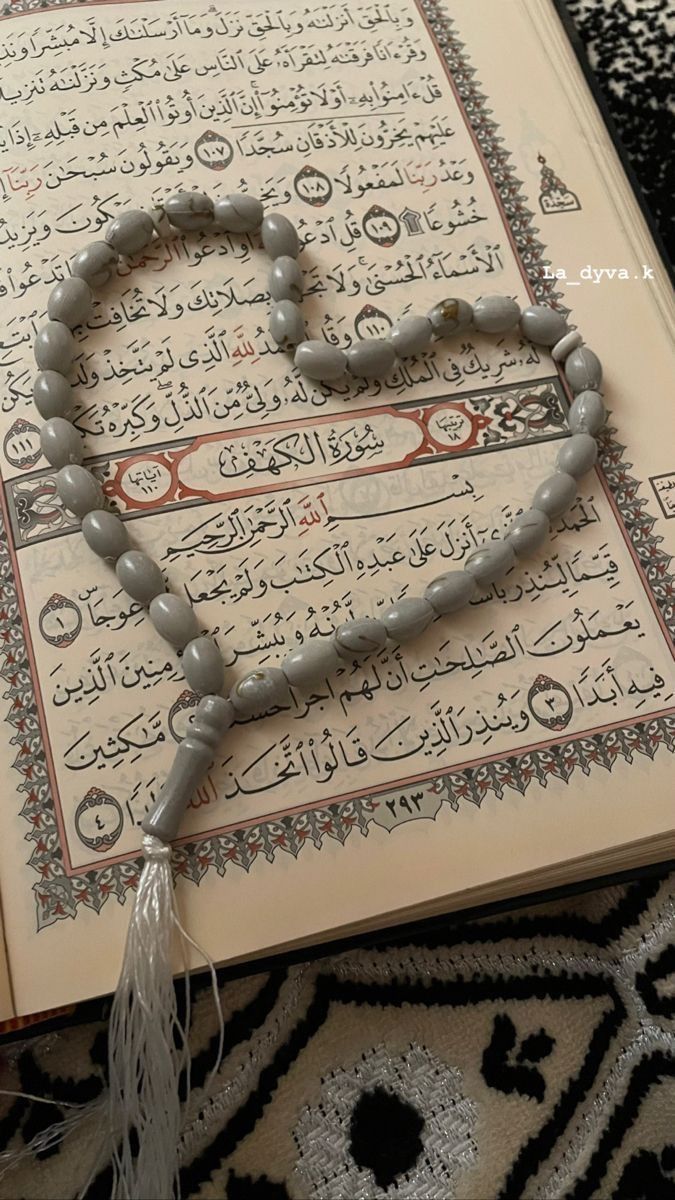 وَبِٱلْحَقِّ أَنزَلْنَٰهُ وَبِٱلْحَقِّ نَزَلَ وَمَآ أَرْسَلْنَٰكَ إِلَّا مُبَشِّرًا
وَقُرْءَانًا فَرَقْنَٰهُ لِتَقْرَأَهُۥ عَلَى ٱلنَّاسِ عَلَىٰ مُكْثٍ وَنَزَّلْنَٰهُ تَنزِيلًا
قُلْ ءَامِنُوا۟ بِهِۦٓ أَوْ لَا تُؤْمِنُوٓا۟ إِنَّ ٱلَّذِينَ أُوتُوا۟ ٱلْعِلْمَ مِن قَبْلِهِۦٓ إِذَا
عَلَيْهِمْ يَخِرُّونَ لِلْأَذْقَانِ سُجَّدًا ١٠٧ وَيَقُولُونَ سُبْحَٰنَ رَبِّنَآ
وَعْدُ رَبِّنَا لَمَفْعُولًا ١٠٨
خُشُوعًا ۩ ١٠٩ قُلِ ٱدْعُوا۟ أَوِ ٱدْعُوا۟ ٱلرَّحْمَٰنَ
ٱلْأَسْمَآءُ ٱلْحُسْنَىٰ وَلَا بِصَلَاتِكَ وَلَا تُخَافِتْ
١١٠ لِلَّهِ ٱلَّذِى لَمْ يَتَّخِذْ
لَّهُۥ شَرِيكٌ فِى ٱلْمُلْكِ وَلَمْ يَكُن لَّهُۥ وَلِىٌّ مِّنَ ٱلذُّلِّ وَكَبِّرْهُ ١١١
سَجْدَة
La_dyva.k
ترتيبها ١٨ سُورَةُ الكَهْفِ آياتها ١١٠
بِسْمِ ٱللَّهِ ٱلرَّحْمَٰنِ ٱلرَّحِيمِ
أَنزَلَ عَلَىٰ عَبْدِهِ ٱلْكِتَٰبَ وَلَمْ يَجْعَل عِوَجَا ۜ ١
قَيِّمًا لِّيُنذِرَ وَيُبَشِّرَ ٱلْمُؤْمِنِينَ ٱلَّذِينَ
يَعْمَلُونَ ٱلصَّٰلِحَٰتِ أَنَّ لَهُمْ أَجْرًا مَّٰكِثِينَ
فِيهِ أَبَدًا ٣ وَيُنذِرَ ٱلَّذِينَ قَالُوا۟ ٱتَّخَذَ ٱللَّهُ ٤
٢٩٣